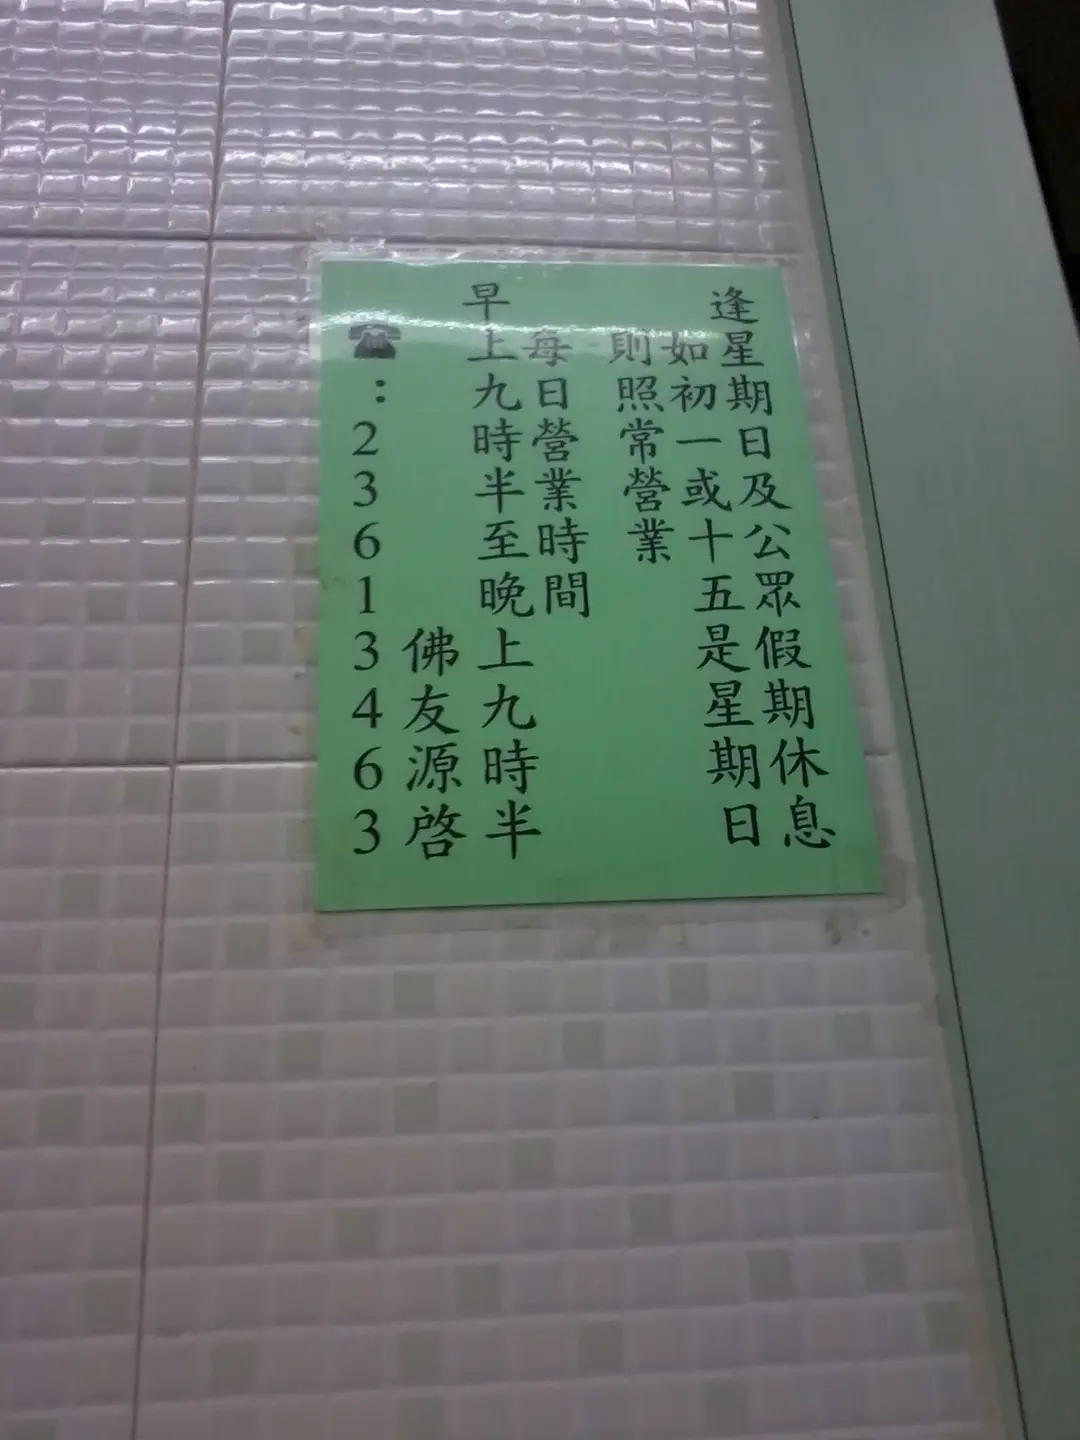 逢星期日及公眾假期休息
如初一或十五是星期日
則照常營業
每日營業時間
早上九時半至晚上九時半
佛友源啓
☎:23613463